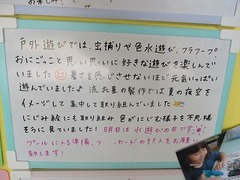 戸外遊びでは、虫捕りや色水遊び、フラワープ
おにごっこと思い思いに好きな遊びを楽しんで
いました 暑さを感じさせないほど元気いっぱい
遊んでいましたよ 流れ星の製作では夏の夜空を
イメージして集中して取り組んでいました
にじみ絵にも取り組み 色がにじむ様子を不思議
そうに見ていました！明日は水遊びの日です
プールに入る準備、
カードの記入をお願い
致します！